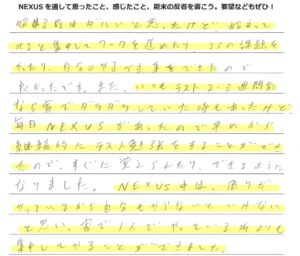 NEXUSを通して思ったこと、感じたこと、期末の反省を書こう。要望などもぜひ！
始まる前はダルいと思ったけど、始まって
みると集中してワークを進めたり、SSの課題を
やったり、自分のやるべき事ができたので
良かったです。また、いつもテスト2~3週間前
なら家でダラダラしていた時もあったけど、
毎日NEXUSがあったので早めから
継続的にテスト勉強をすることができ
たので、すぐに覚えられたり、できるように
なりました。NEXUS中は、周りが
やっているから自分もやらないといけない
と思い、家で1人でやっている時よりも
集中してやることができました。